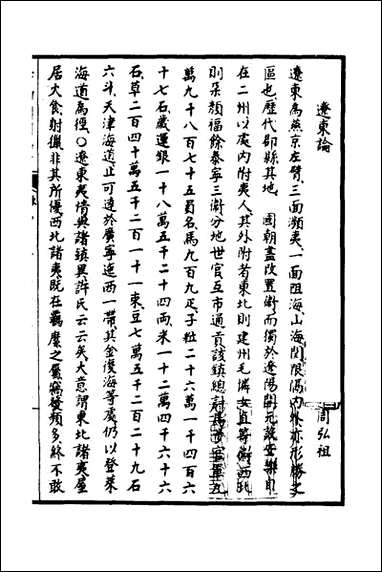 遼東論
周弘祖
遼東為燕京左臂三面瀕夷一面阻海山海關限隔內外亦形勝之
區也歷代郡縣其地　國朝盡改置衛而獨於遼陽開元設安樂自
在二州以處內附夷人其外附者東北則建州毛憐女直等衛西北
則朵顏福餘泰寧三衛分地世官互市通貢該鎮總計馬步官軍九
萬九千八百七十五員名馬九百九疋子粒二十六萬一千四百六
十七石歲運銀一十八萬五千二十四兩米一十二萬四千六十六
石草二百四十萬五千二百一十一束豆七萬五千二百二十九石
六斗天津海道止可達於廣寧迤西一帶其金復海等處仍以登萊
海道為徑〇遼東夷情與諸鎮異許氏云云矣大意謂東北諸夷屋
居火食射獵非其所優西北諸夷既在羈縻之屬竊發頻多終不敢